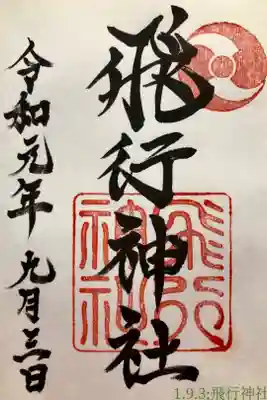 飛行神社
令和元年 九月三日
飛行
神社
1.9.3:飛行神社